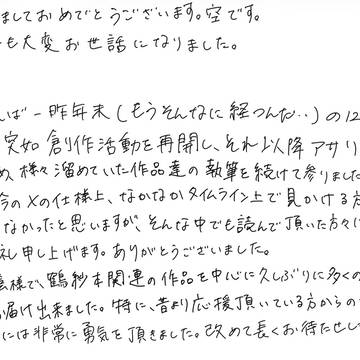 ましておめでとうございます。空です。
も大変お世話になりました。
ば一昨年末(もうそんなに経つんだ…)の12
突如創作活動を再開し、それ以降アサリ
め、様々溜めていた作品達の執筆を続けて参りました
今のXの仕様上、なかなかタイムライン上で見かける方
なかったと思いますが、そんな中でも読んで頂いた方々に
礼申し上げます。ありがとうございました。
様で、鶴紗本関連の作品を中心に久しぶりに多くの
届け出来ました。特に、昔より応援頂いている方からの
には非常に勇気を頂きました。改めて長くお待たせし